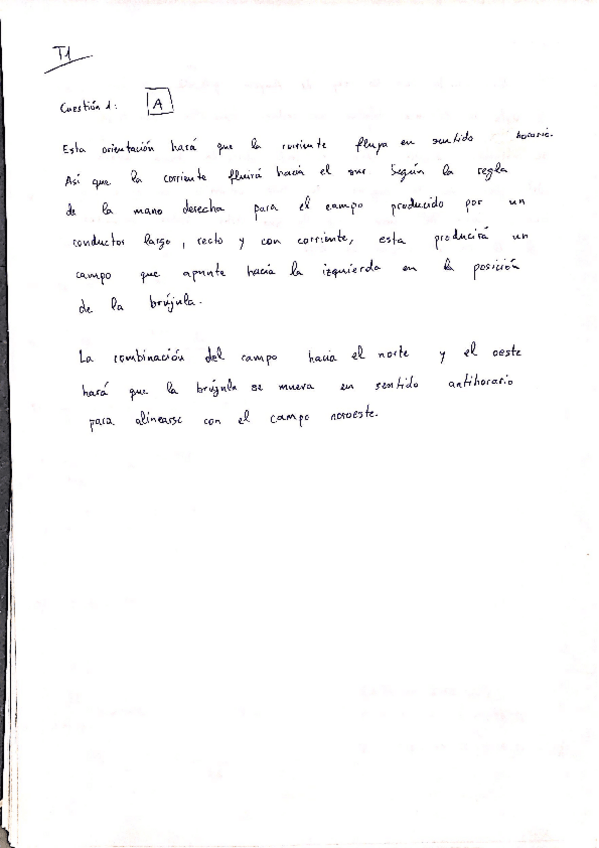 T1
Cuestión 1: A
Esta orientación hará que la corriente fluya en sentido horario.
Así que la corriente fluirá hacia el sur Según la regla
de la mano derecha para el campo producido por un
conductor largo, recto y con corriente, esta producirá un
campo que apunte hacia la izquierda en la posición
de la brújula.
La combinación del campo hacia el norte y el oeste
hará que la brújula se mueva en sentido antihorario
para alinearse con el campo noroeste.